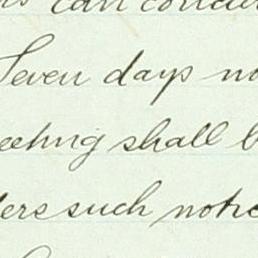 can condu
Seven days no
eeting shall b
ers such notic